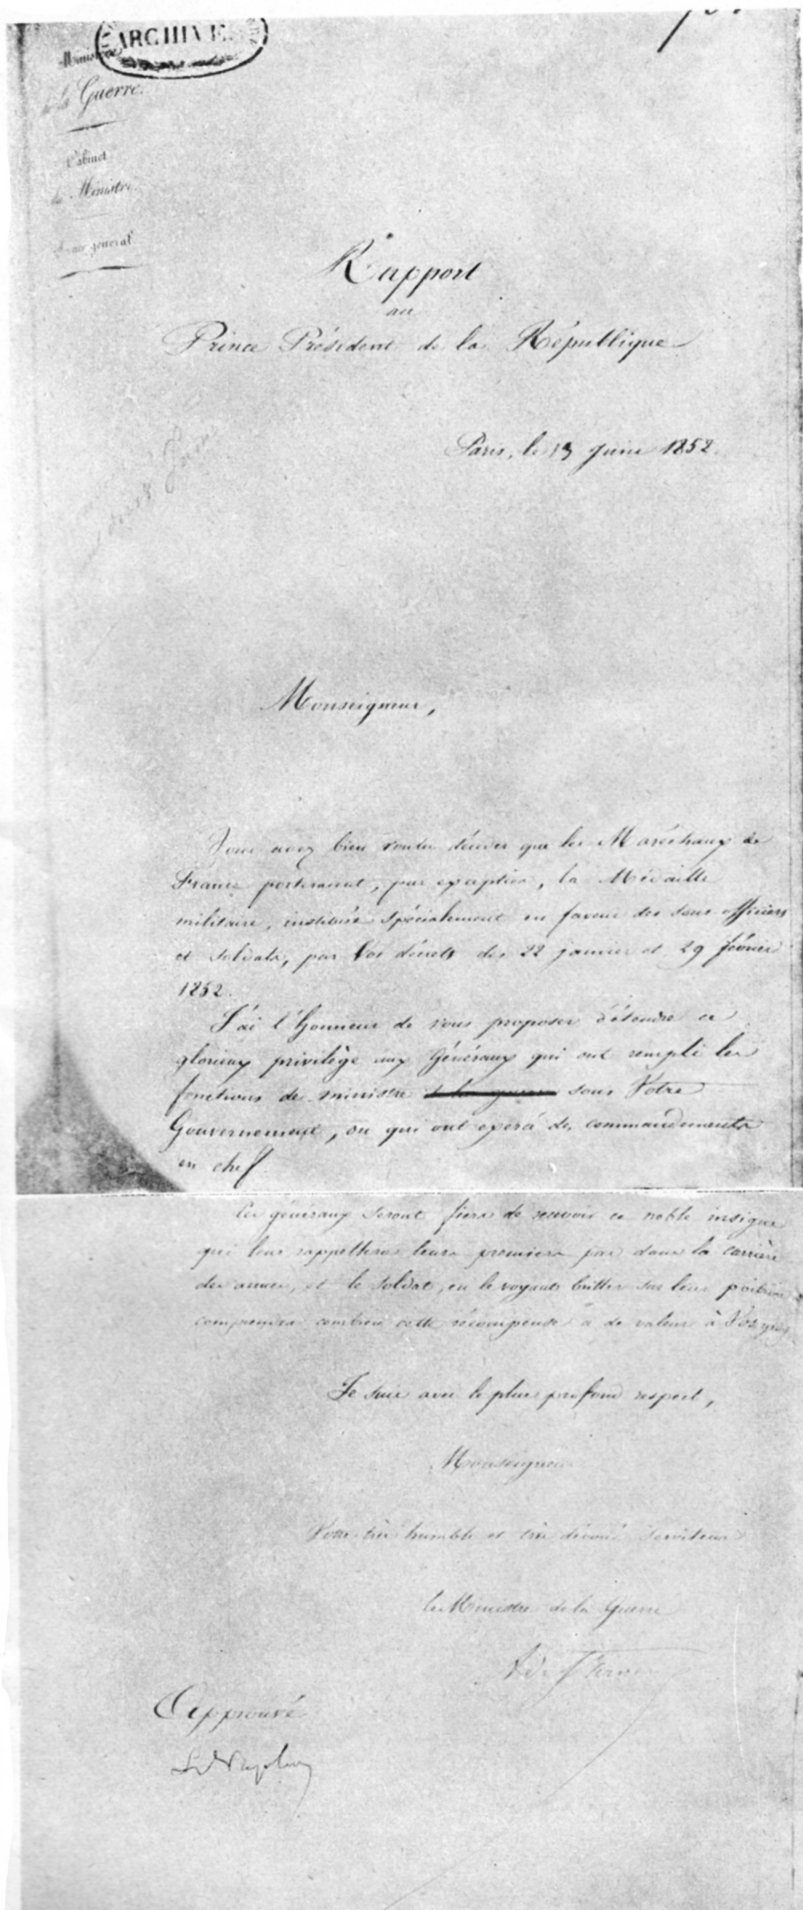 ARCHIVE
Ministère
de la Guerre.
Cabinet
du Ministre
général
Rapport
au
Prince Président de la République
Paris, le 13 Juin 1852.
Monseigneur,
Vous avez bien voulu décider que les Maréchaux de
France porteraient, par exception, la Médaille
militaire, instituée spécialement en faveur des sous officiers
et soldats, par vos décrets des 22 janvier et 29 février
1852.
J'ai l'honneur de vous proposer d'étendre ce
glorieux privilège aux Généraux qui ont rempli les
fonctions de ministre de la guerre sous Votre
Gouvernement, ou qui ont exercé des commandements
en chef
Ces généraux seront fiers de recevoir ce noble insigne
qui leur rappellera leurs premiers pas dans la carrière
des armes, et le soldat, en le voyant briller sur leur poitrine
comprendra combien cette récompense a de valeur à Vos yeux
Je suis avec le plus profond respect,
Monseigneur
Votre très humble et très dévoué serviteur
Le Ministre de la Guerre
Approuvé